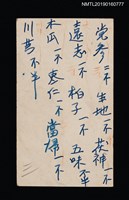 NMTL20190160777
党參二不 生地一不 茯神一不
遠志一不 柏子一不 五味半不
木瓜一不 枣仁一不 當歸一不
川芎不半